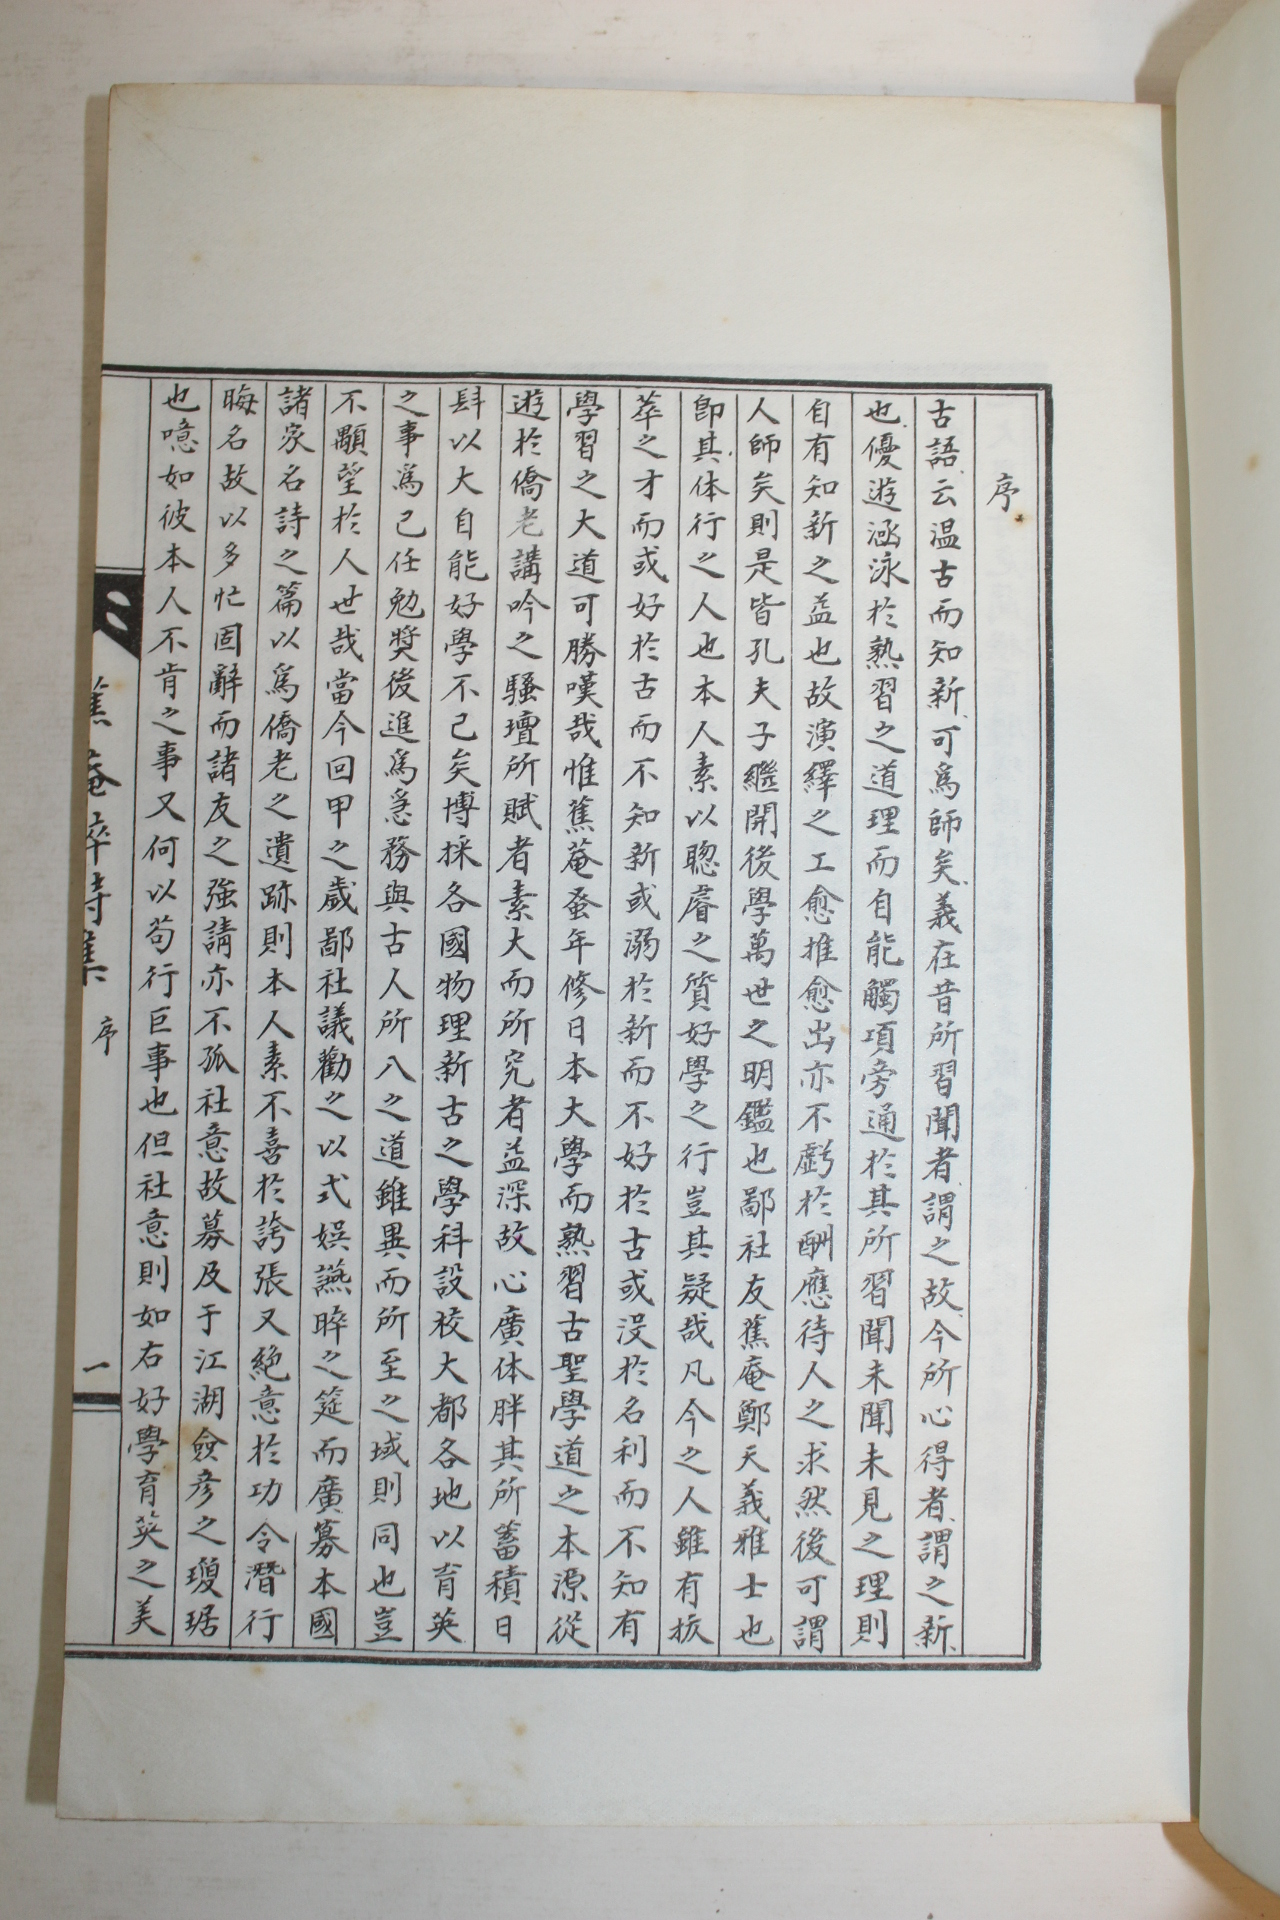 序
古語云温古而知新可爲師矣義在昔所習聞者謂之故今所心得者謂之新
也優遊涵泳於熟習之道理而自能觸項旁通於其所習聞未聞未見之理則
自有知新之益也故演繹之工愈推愈出亦不虧於酬應待人之求然後可謂
人師矣則是皆孔夫子繼開後學萬世之明鑑也鄙社友蕉庵鄭天義雅士也
卽其体行之人也本人素以聰睿之質好學之行豈其疑哉凡今之人雖有拔
萃之才而或好於古而不知新或溺於新而不好於古或沒於名利而不知有
學習之大道可勝嘆哉惟蕉菴蚤年修日本大學而熟習古聖學道之本源從
遊於僑老講吟之騷壇所賦者素大而所究者益深故心廣体胖其所蓄積日
肆以大自能好學不已矣博採各國物理新古之學科設校大都各地以育英
之事爲己任勉奬後進爲急務與古人所入之道雖異而所至之域則同也豈
不顒望於人世哉當今回甲之歲鄙社議勸之以式娛讌晬之筵而廣募本國
諸家名詩之篇以爲僑老之遺跡則本人素不喜於誇張又絕意於功令潛行
晦名故以多忙固辭而諸友之強請亦不孤社意故募及于江湖僉彦之瓊琚
也噫如彼本人不肯之事又何以苟行巨事也但社意則如右好學育英之美
蕉菴晬詩集
序
一